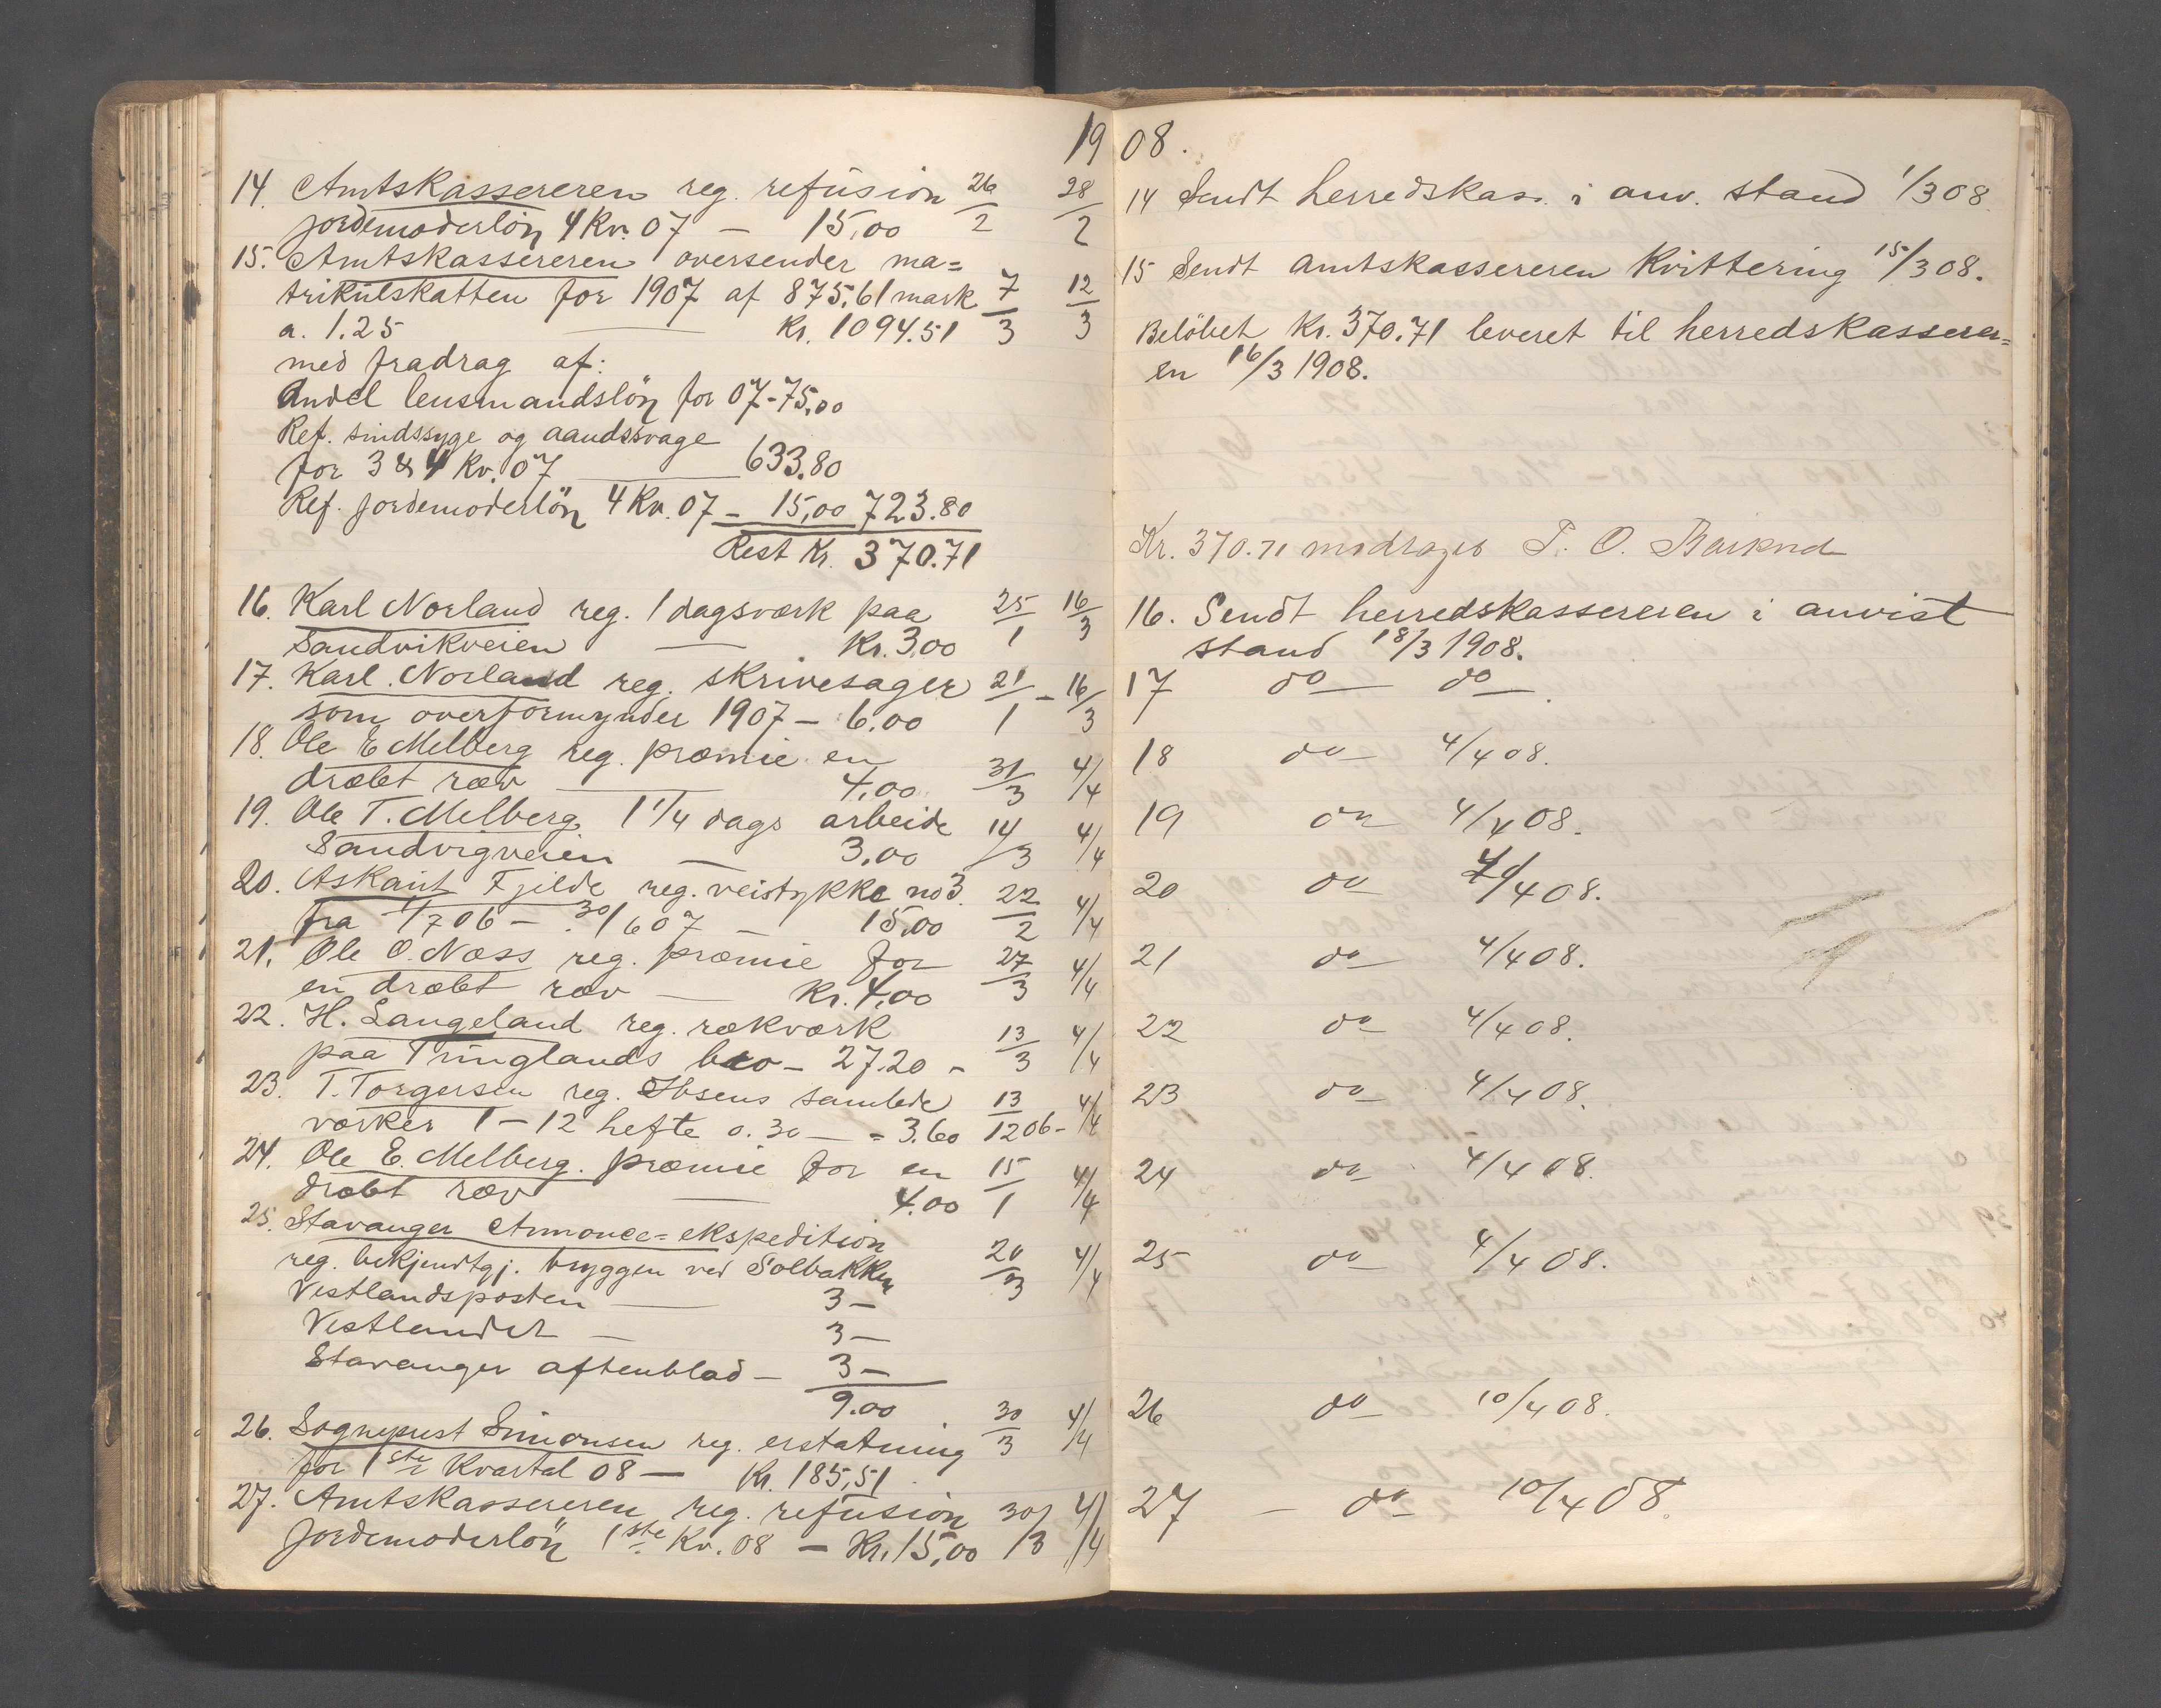 1908.
14. Amtskassereren reg. refusion 26/2 28/2
jordemoderlön 4 Kv. 07 — 15,00
15. Amtskassereren oversender ma=
trikulskatten for 1907 af 875,61 mark 7/3 12/3
a. 1.25 — Kr. 1094.51
med fradrag af:
Andel lensmandslön for 07 - 75,00
Ref. sindssyge og aandssvage
for 3 & 4 Kv. 07 — 633.80
Ref. jordemoderlön 4 Kv. 07 — 15,00 723.80
Rest Kr. 370.71
16. Karl Norland reg. 1 dagsværk paa 25/1 16/3
Sandvikveien — Kr. 3,00
17. Karl Norland reg. skrivesager 21/1 - 16/3
som overformynder 1907 — 6.00
18. Ole E Melberg reg. præmie en
dræbt ræv — 4,00 31/3 4/4
19. Ole T. Melberg 1 1/4 dags arbeide 14/3 4/4
Sandvigveien — 3,00
20. Askant Fjilde reg. veistykke no 3. 22/2 4/4
fra 1/7 06 — 30/6 07 — 15,00
21. Ole O. Næss reg. præmie for 27/3 4/4
en dræbt ræv — Kr. 4,00
22. H. Langeland reg. rækværk 13/3 4/4
paa Tringlands bro — 27.20 -
23. T. Torgersen reg. Ibsens samlede 13/12 06 - 4/4
værker 1 — 12 hefte 0.30 — = 3.60
24. Ole E. Melberg. præmie for en 15/1 4/4
dræbt ræv — 4.00
25. Stavanger Annonce=ekspedition
reg. bekjendtgj. bryggen ved Solbakken 20/3 4/4
Vestlandsposten — 3 —
Vestlandet — 3 —
Stavanger aftenblad — 3 —
9.00
26. Sogneprest Simonsen reg. erstatning 30/3 4/4
for 1ste Kvartal 08 — Kr. 185,51
27. Amtskassereren reg. refusion 30/3 4/4
Jordemoderlön 1ste Kv. 08 — Kr. 15,00
14 Sendt herredskas. i anv. stand 1/3 08.
15 Sendt amtskassereren Kvittering 15/3 08.
Belöbet Kr. 370.71 leveret til herredskasserer=
en 16/3 1908.
Kr. 370.71 modtages T. O.
16. Sendt herredskassereren i anvist
stand 18/3 1908.
17 do — do —.
18 do — 4/4 08.
19 do 4/4 08.
20 do 4/4 08.
21 do 4/4 08.
22 do 4/4 08.
23 do 4/4 08.
24 do 4/4 08.
25 do 4/4 08.
26 do 10/4 08.
27 — do 10/4 08.